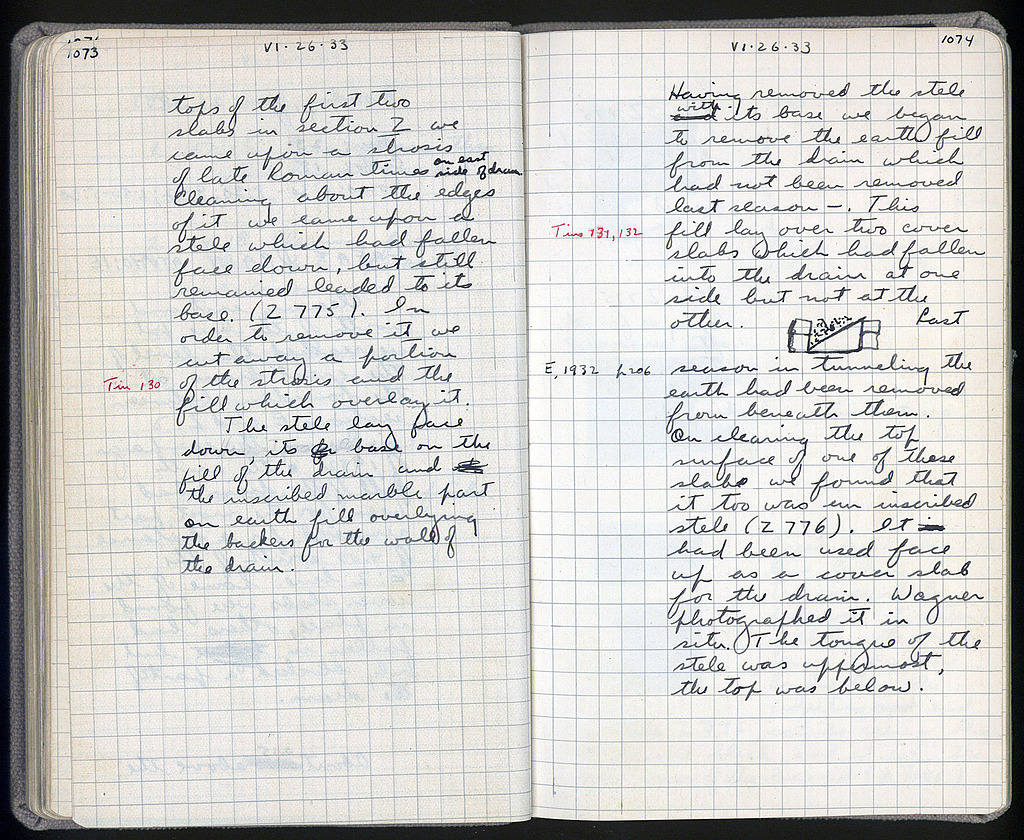 1073
VI·26·33
tops of the first two
slabs in section Z we
came upon a strosis
of late Roman times on east side of drain
Cleaning about the edges
of it we came upon a
stele which had fallen
face down, but still
remained leaded to its
base. (Z 775). In
order to remove it we
cut away a portion
Tin 130
of the strosis and the
fill which overlay it.
The stele lay face
down, its base on the
fill of the drain and
the inscribed marble part
on earth fill overlying
the backers for the wall of
the drain.
VI·26·33
1074
Having removed the stele
with its base we began
to remove the earth fill
from the drain which
had not been removed
last season –. This
Tins 131, 132
fill lay over two cover
slabs which had fallen
into the drain at one
side but not at the
other. Past
E, 1932 p. 206
season in tunneling the
earth had been removed
from beneath them.
On clearing the top
surface of one of these
slabs we found that
it too was an inscribed
stele (Z 776). It
had been used face
up as a cover slab
for the drain. Wagner
photographed it in
situ. The tongue of the
stele was uppermost,
the top was below.